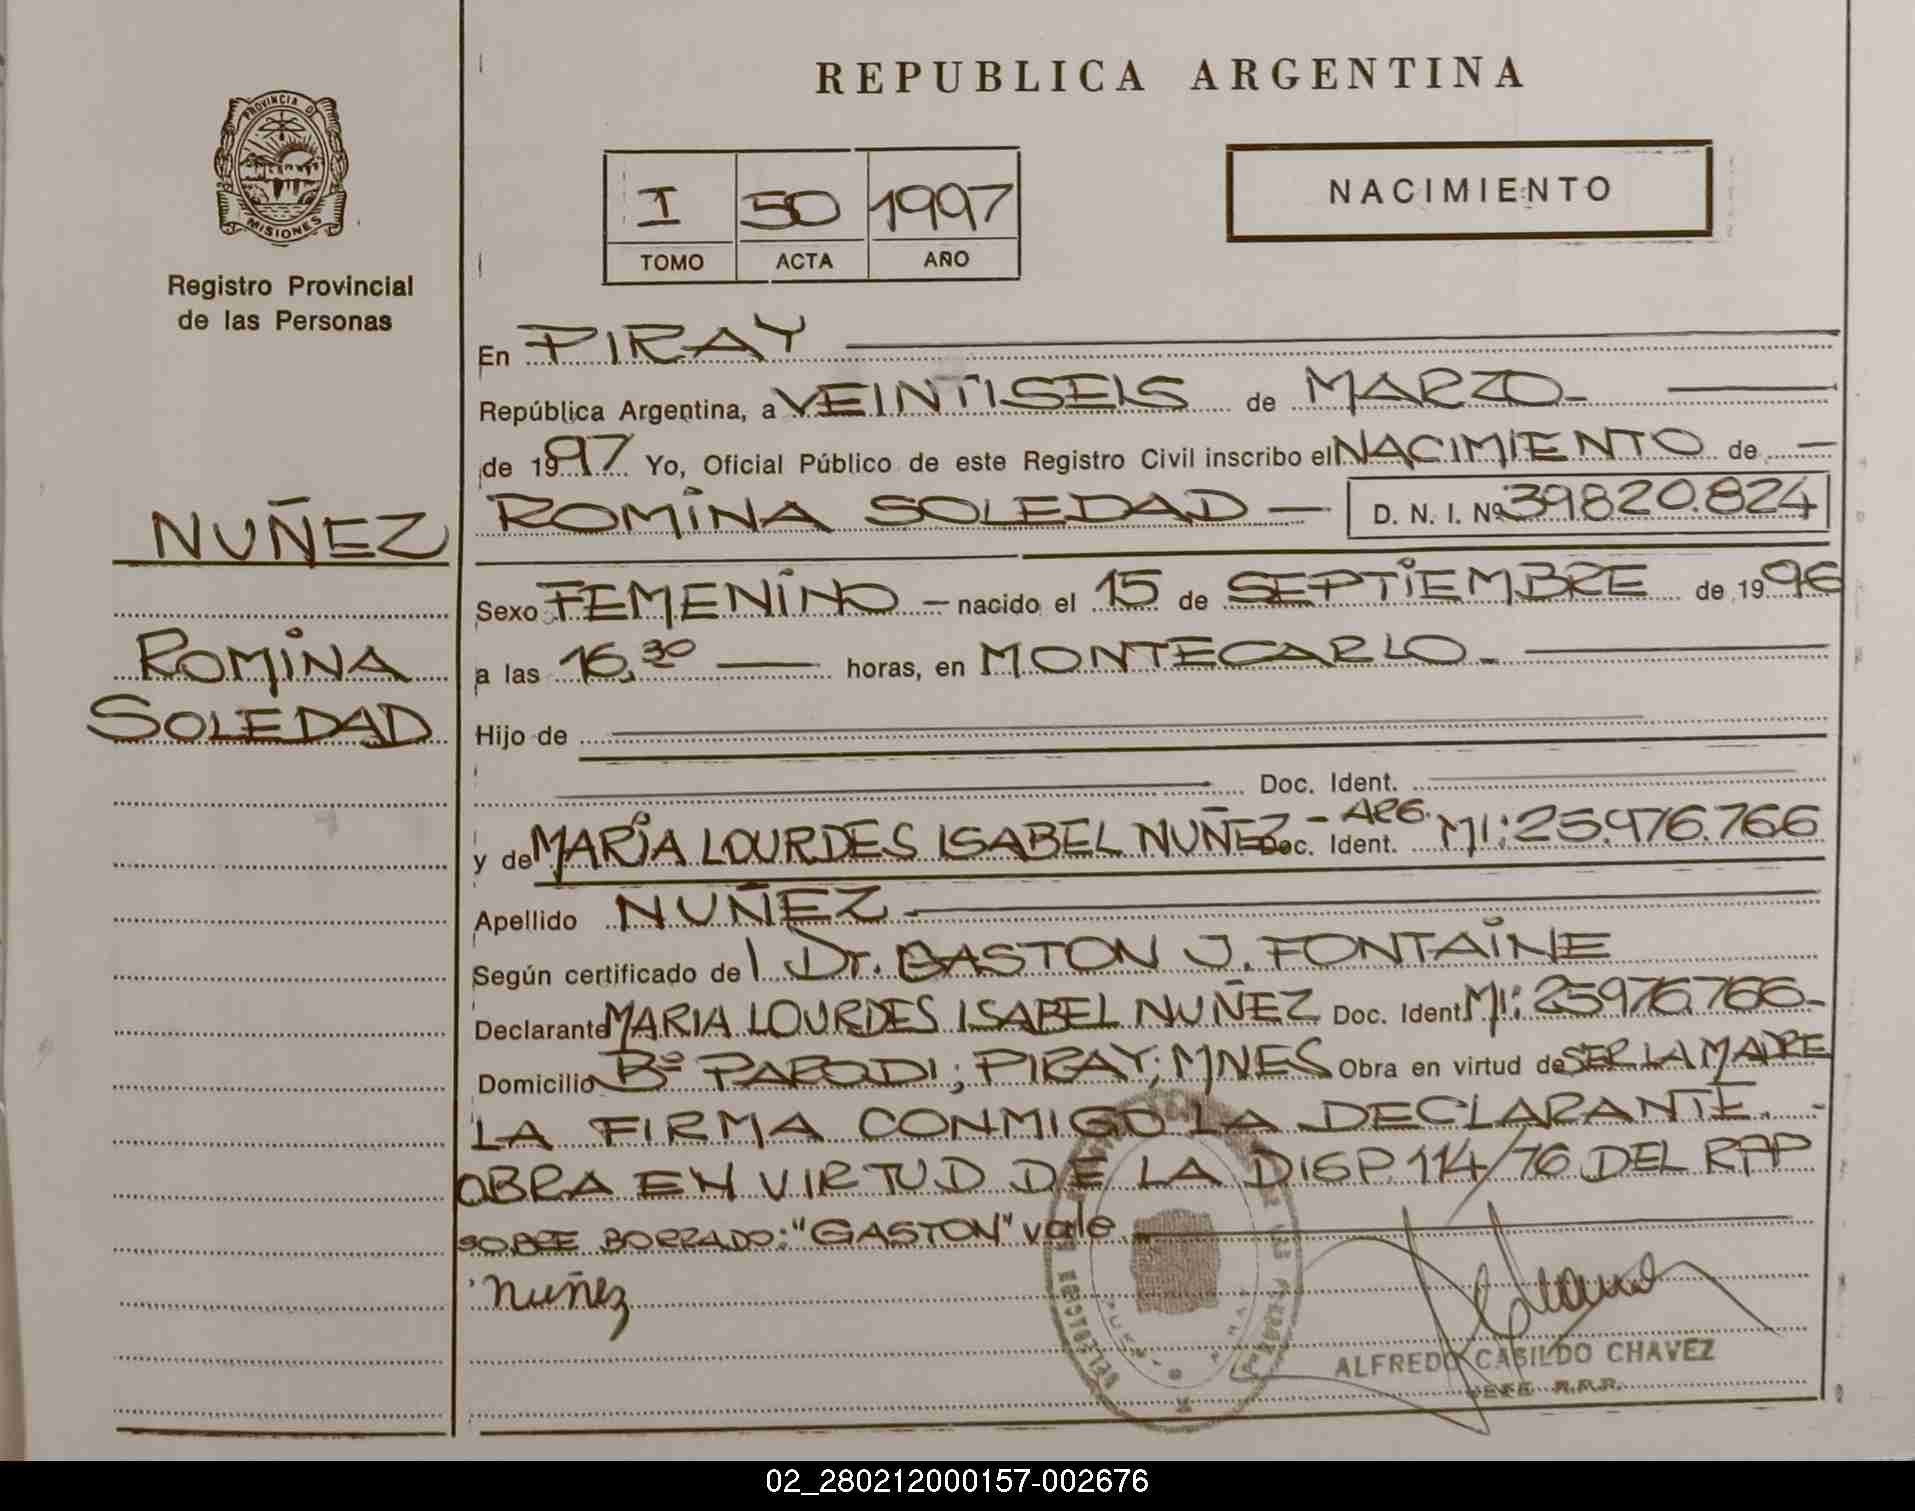 REPUBLICA ARGENTINA
PROVINCIA D
MISIONES
Registro Provincial
de las Personas
I 50 1997
TOMO ACTA AÑO
NACIMIENTO
En PIRAY
República Argentina, a VEINTISEIS de MARZO
de 1997 Yo, Oficial Público de este Registro Civil inscribo el NACIMIENTO de
NUÑEZ
ROMINA
SOLEDAD
ROMINA SOLEDAD — D. N. I. Nº 39820.824
Sexo FEMENINO — nacido el 15 de SEPTIEMBRE de 1996
a las 16,30 horas, en MONTECARLO
Hijo de
Doc. Ident.
y de MARIA LOURDES ISABEL NUÑEZ - ARG. Doc. Ident. MI: 25.976.766
Apellido NUÑEZ
Según certificado del Dr. GASTON J. FONTAINE
Declarante MARIA LOURDES ISABEL NUÑEZ Doc. Ident. MI: 25976.766-
Domicilio Bº PARODI; PIRAY; MNES Obra en virtud de SER LA MADRE
LA FIRMA CONMIGO LA DECLARANTE. -
OBRA EN VIRTUD DE LA DISP. 114/76 DEL RPP
SOBRE BORRADO: "GASTON" vale
Nuñez
ALFREDO CASILDO CHAVEZ
JEFE R.P.P.
02_280212000157-002676